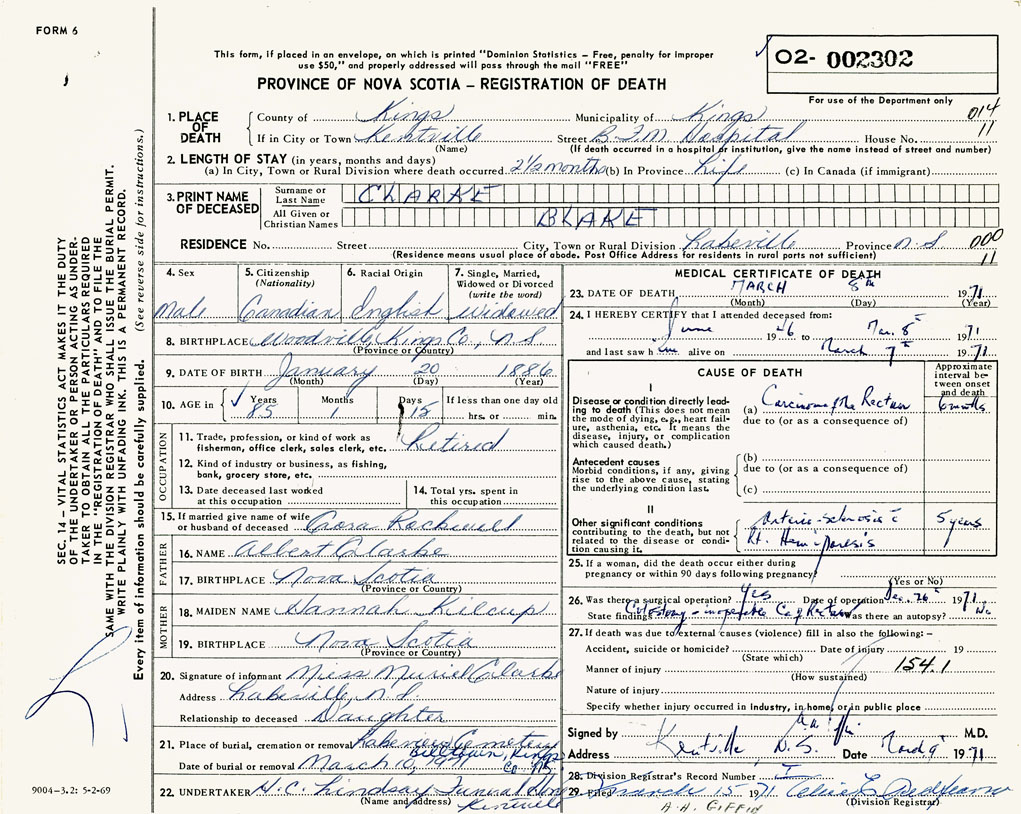 FORM 6
This form, if placed in an envelope, on which is printed "Dominion Statistics – Free, penalty for improper
use $50," and properly addressed will pass through the mail "FREE"
PROVINCE OF NOVA SCOTIA – REGISTRATION OF DEATH
O2- 002302
For use of the Department only
014
11
1. PLACE OF DEATH
County of Kings Municipality of Kings
If in City or Town Kentville Street B.F.M. Hospital House No.
(Name) (If death occurred in a hospital or institution, give the name instead of street and number)
2. LENGTH OF STAY (in years, months and days)
(a) In City, Town or Rural Division where death occurred 2½ months (b) In Province Life (c) In Canada (if immigrant)
3. PRINT NAME OF DECEASED
Surname or Last Name CLARKE
All Given or Christian Names BLAKE
RESIDENCE No. Street City, Town or Rural Division Lakeville Province N.S. 000
(Residence means usual place of abode. Post Office Address for residents in rural parts not sufficient) 11
4. Sex Male
5. Citizenship (Nationality) Canadian
6. Racial Origin English
7. Single, Married, Widowed or Divorced (write the word) Widowed
8. BIRTHPLACE Woodville, Kings Co., N.S
(Province or Country)
9. DATE OF BIRTH January 20 1886
(Month) (Day) (Year)
10. AGE in Years 85 Months 1 Days 15 If less than one day old hrs. or min.
OCCUPATION
11. Trade, profession, or kind of work as fisherman, office clerk, sales clerk, etc. Retired
12. Kind of industry or business, as fishing, bank, grocery store, etc.
13. Date deceased last worked at this occupation
14. Total yrs. spent in this occupation
15. If married give name of wife or husband of deceased Cora Rockwell
FATHER
16. NAME Albert Clarke
17. BIRTHPLACE Nova Scotia
(Province or Country)
MOTHER
18. MAIDEN NAME Hannah Kilcup
19. BIRTHPLACE Nova Scotia
(Province or Country)
20. Signature of informant Miss Muriel Clarke
Address Lakeville, N.S.
Relationship to deceased Daughter
21. Place of burial, cremation or removal Lakeview Cemetery
Billtown, Kings Co. N.S.
Date of burial or removal March 10, 1971
22. UNDERTAKER W.C. Lindsay Funeral Home
(Name and address) Kentville
MEDICAL CERTIFICATE OF DEATH
23. DATE OF DEATH MARCH 8th 1971
(Month) (Day) (Year)
24. I HEREBY CERTIFY that I attended deceased from:
June 1946 to Mar. 8th 1971
and last saw him alive on March 7th 1971
CAUSE OF DEATH
Approximate interval between onset and death
I
Disease or condition directly leading to death (This does not mean the mode of dying, e.g., heart failure, asthenia, etc. It means the disease, injury, or complication which caused death.)
(a) Carcinoma of the Rectum 6 months
due to (or as a consequence of)
Antecedent causes
Morbid conditions, if any, giving rise to the above cause, stating the underlying condition last.
(b)
due to (or as a consequence of)
(c)
II
Other significant conditions contributing to the death, but not related to the disease or condition causing it.
Arterio-sclerosis c̄ 5 years
Rt. Hemiparesis
25. If a woman, did the death occur either during pregnancy or within 90 days following pregnancy?
(Yes or No)
26. Was there a surgical operation? Yes Date of operation Dec. 26th 1971
State findings Colostomy - inoperable Ca of Rectum Was there an autopsy? No
27. If death was due to external causes (violence) fill in also the following: –
Accident, suicide or homicide? Date of injury 19
(State which)
Manner of injury 154.1
(How sustained)
Nature of injury
Specify whether injury occurred in industry, in home, or in public place
Signed by M.D.
Address Kentville N.S. Date March 9 1971
28. Division Registrar's Record Number
29. Filed March 15 1971
(Division Registrar)
A.A. GIFFIN
SEC. 14 – VITAL STATISTICS ACT MAKES IT THE DUTY
OF THE UNDERTAKER OR PERSON ACTING AS UNDER.
TAKER TO OBTAIN ALL THE PARTICULARS REQUIRED
IN THE "REGISTRATION OF DEATH" AND TO FILE THE
SAME WITH THE DIVISION REGISTRAR WHO SHALL ISSUE THE BURIAL PERMIT.
WRITE PLAINLY WITH UNFADING INK. THIS IS A PERMANENT RECORD.
Every item of information should be carefully supplied. (See reverse side for instructions.)
9004-3.2: 5-2-69